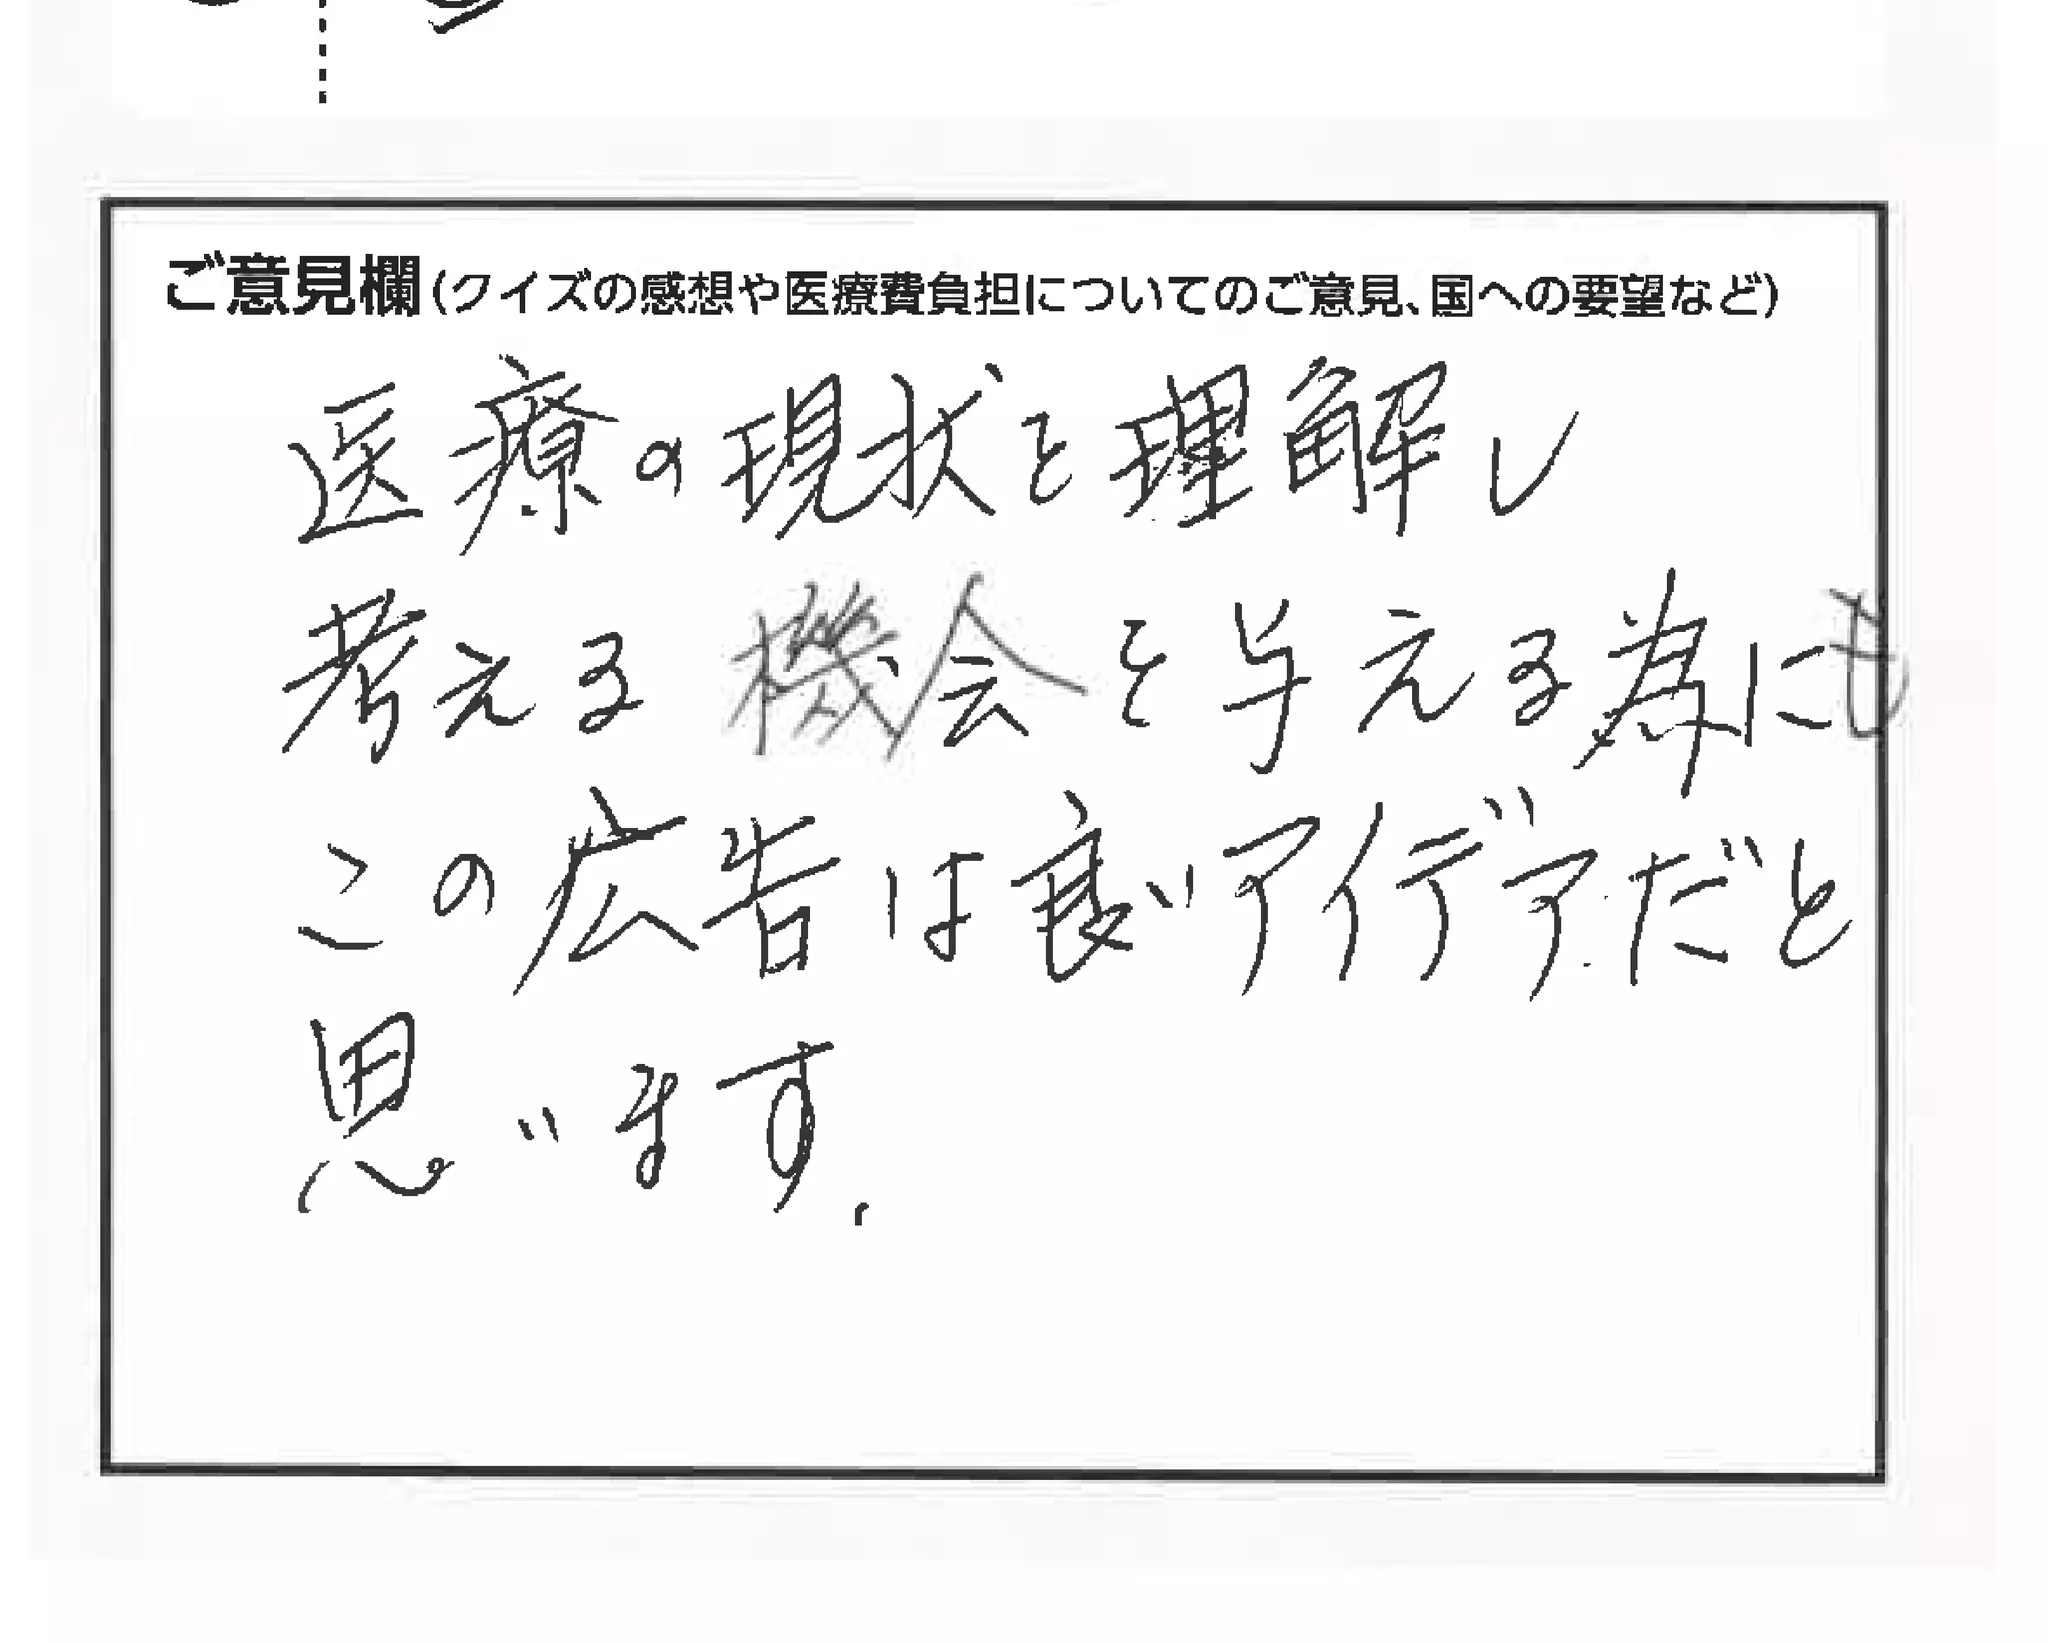 ご意見欄(クイズの感想や医療費負担についてのご意見、国への要望など)
医療の現状を理解し
考える機会を与える為にも
この広告は良いアイデアだと
思います.